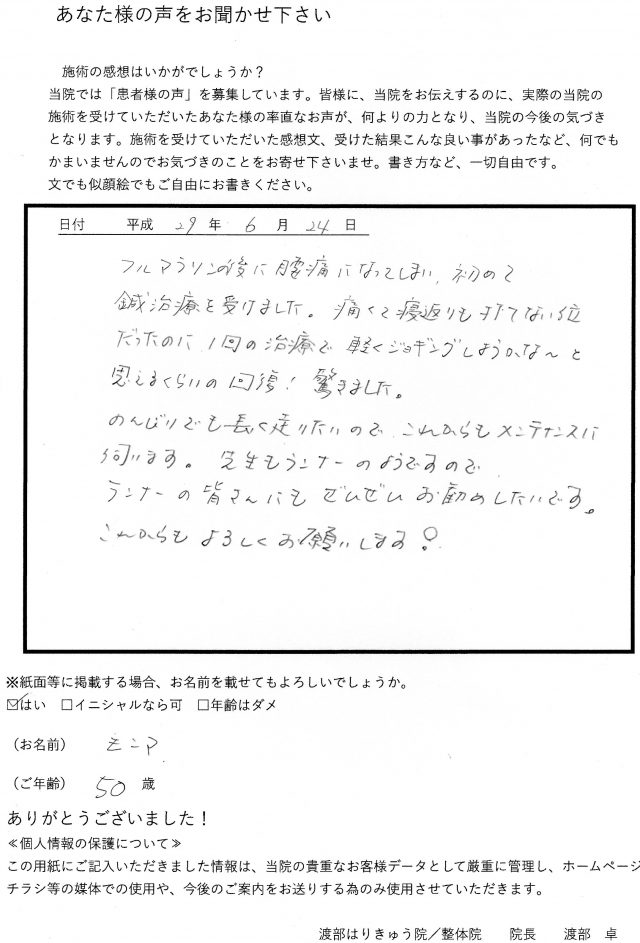 あなた様の声をお聞かせ下さい
施術の感想はいかがでしょうか？
当院では「患者様の声」を募集しています。皆様に、当院をお伝えするのに、実際の当院の
施術を受けていただいたあなた様の率直なお声が、何よりの力となり、当院の今後の気づき
となります。施術を受けていただいた感想文、受けた結果こんな良い事があったなど、何でも
かまいませんのでお気づきのことをお寄せ下さいませ。書き方など、一切自由です。
文でも似顔絵でもご自由にお書きください。
日付 平成 29 年 6 月 24 日
フルマラソンの後に腰痛になってしまい、初めて
鍼治療を受けました。痛くて寝返りも打てない位
だったのに、1回の治療で軽くジョギングしようかな〜と
思えるくらいの回復！驚きました。
のんびりでも長く走りたいので、これからもメンテナンスに
伺います。先生もランナーのようですので
ランナーの皆さんにもぜひぜひお勧めしたいです。
これからもよろしくお願いします！
※紙面等に掲載する場合、お名前を載せてもよろしいでしょうか。
☑はい □イニシャルなら可 □年齢はダメ
（お名前） モニア
（ご年齢） 50 歳
ありがとうございました！
≪個人情報の保護について≫
この用紙にご記入いただきました情報は、当院の貴重なお客様データとして厳重に管理し、ホームページ
チラシ等の媒体での使用や、今後のご案内をお送りする為のみ使用させていただきます。
渡部はりきゅう院／整体院 院長 渡部 卓